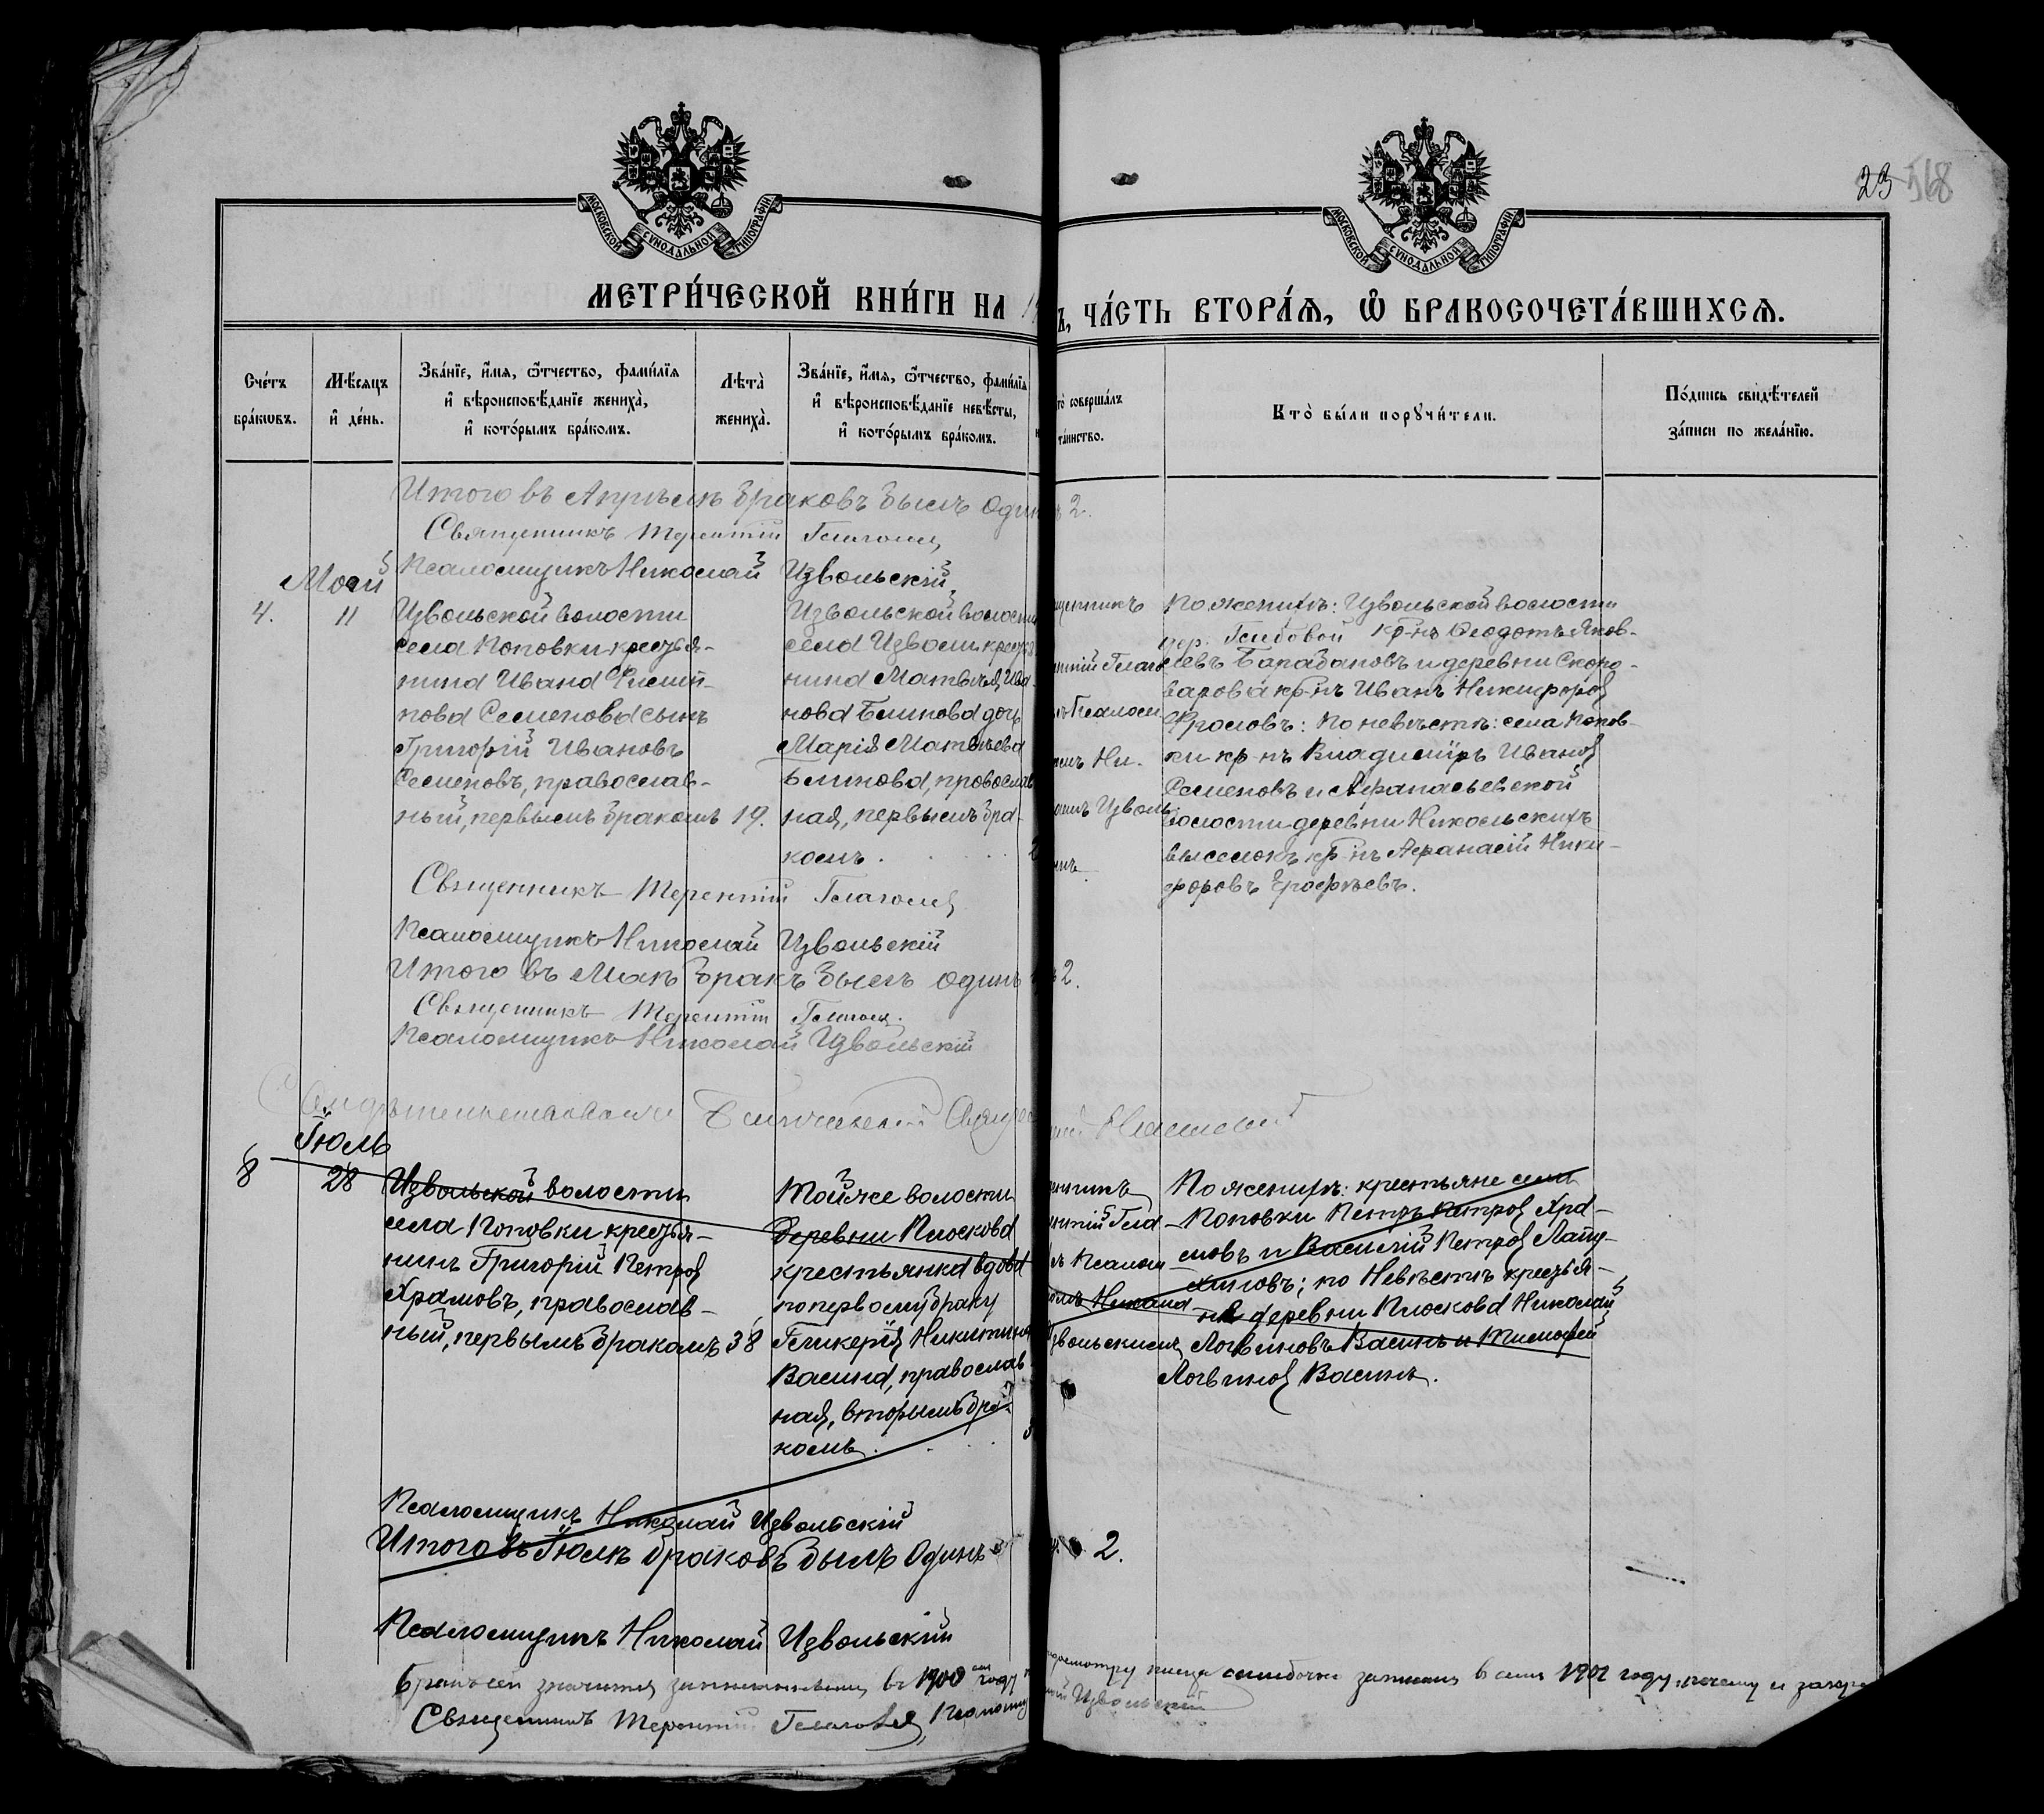 23 568
МОСКОВСКОЙ СѴНОДАЛЬНОЙ ТИПОГРАФІИ
МОСКОВСКОЙ СѴНОДАЛЬНОЙ ТИПОГРАФІИ
МЕТРИ́ЧЕСКОЙ КНИ́ГИ НА
ЧА́СТЬ ВТОРА́Ѧ, Ѡ҆ БРАКОСОЧЕТА́ВШИХСѦ.
Сче́тъ бра́кѡвъ.
Мѣ́сяцъ и҆ де́нь.
Зва́нїе, и҆́мѧ, ѻ҆́тчество, фами́лїѧ
и҆ вѣроисповѣ́данїе жениха̀,
и҆ кото́рымъ бра́комъ.
Лѣта̀ жениха̀.
Зва́нїе, и҆́мѧ, ѻ҆́тчество, фами́лїѧ
и҆ вѣроисповѣ́данїе невѣ́сты,
и҆ кото́рымъ бра́комъ.
соверша́лъ
та́инство.
Кто̀ бы́ли порꙋчи́тели.
По́дпись свидѣ́телей
за́писи по жела́нїю.
Итого въ Апрѣлѣ браковъ былъ один 2.
Священникъ Терентій Глаголев
Псаломщикъ Николай Извольскій
Май
4. 11
Извольской волости
села Поповки крестья-
нина Ивана Филип-
пова Семенова сынъ
Григорій Ивановъ
Семеновъ, православ-
ный, первымъ бракомъ 19.
Извольской волости
села Изволи крестья
нина Матвѣя Ива-
нова Блинова дочь
Марія Матвѣева
Блинова, православ
ная, первымъ бра-
комъ.
щенникъ
нтій Глаго
Псалом
Ни-
Изволь
По женихѣ: Извольской волости
дер. Глебовой кр-нъ Ѳеодотъ Яков-
левъ Барабановъ и деревни Скоро-
варова кр-нъ Иванъ Никифоров
Фроловъ: По невѣстѣ: села Попов-
ки кр-нъ Владиміръ Иванов
Семеновъ и Афанасьевской
волости деревни Никольскихъ
выселокъ кр-нъ Афанасій Ники-
форовъ Ерофѣевъ.
Священникъ Терентій Глаголев
Псаломщикъ Николай Извольскій
Итого въ Маѣ бракъ былъ одинъ 2.
Священникъ Терентій Глагол.
Псаломщикъ Николай Извольскій
Іюль
8 28
Извольской волости
села Поповки крестья-
нинъ Григорій Петров
Храмовъ, православ-
ный, первымъ бракомъ 38
Той же волости
деревни Плоскова
крестьянка вдова
по первому браку
Гликерія Никитина
Васина, православ
ная, вторымъ бра-
комъ.
енникъ
нтій Гла-
Псалом
Никола-
звольскимъ
По женихѣ: крестьяне села
Поповки Петръ Петров Хра-
мовъ и Василій Петров Лату-
хиновъ; по Невѣстѣ крестья-
не деревни Плоскова Николай
Логвиновъ Васинъ и Тимофей
Логвинов Васинъ.
Псаломщикъ Николай Извольскій
Итого въ Іюлѣ браковъ былъ Одинъ 2.
Псаломщикъ Николай Извольскій
Бракъ сей значится въ 1900 году
недосмотру писца ошибочно записанъ въ семъ 1901 году, почему и зачер
Священникъ Терентій Глаголев, Псаломщ
Извольскій